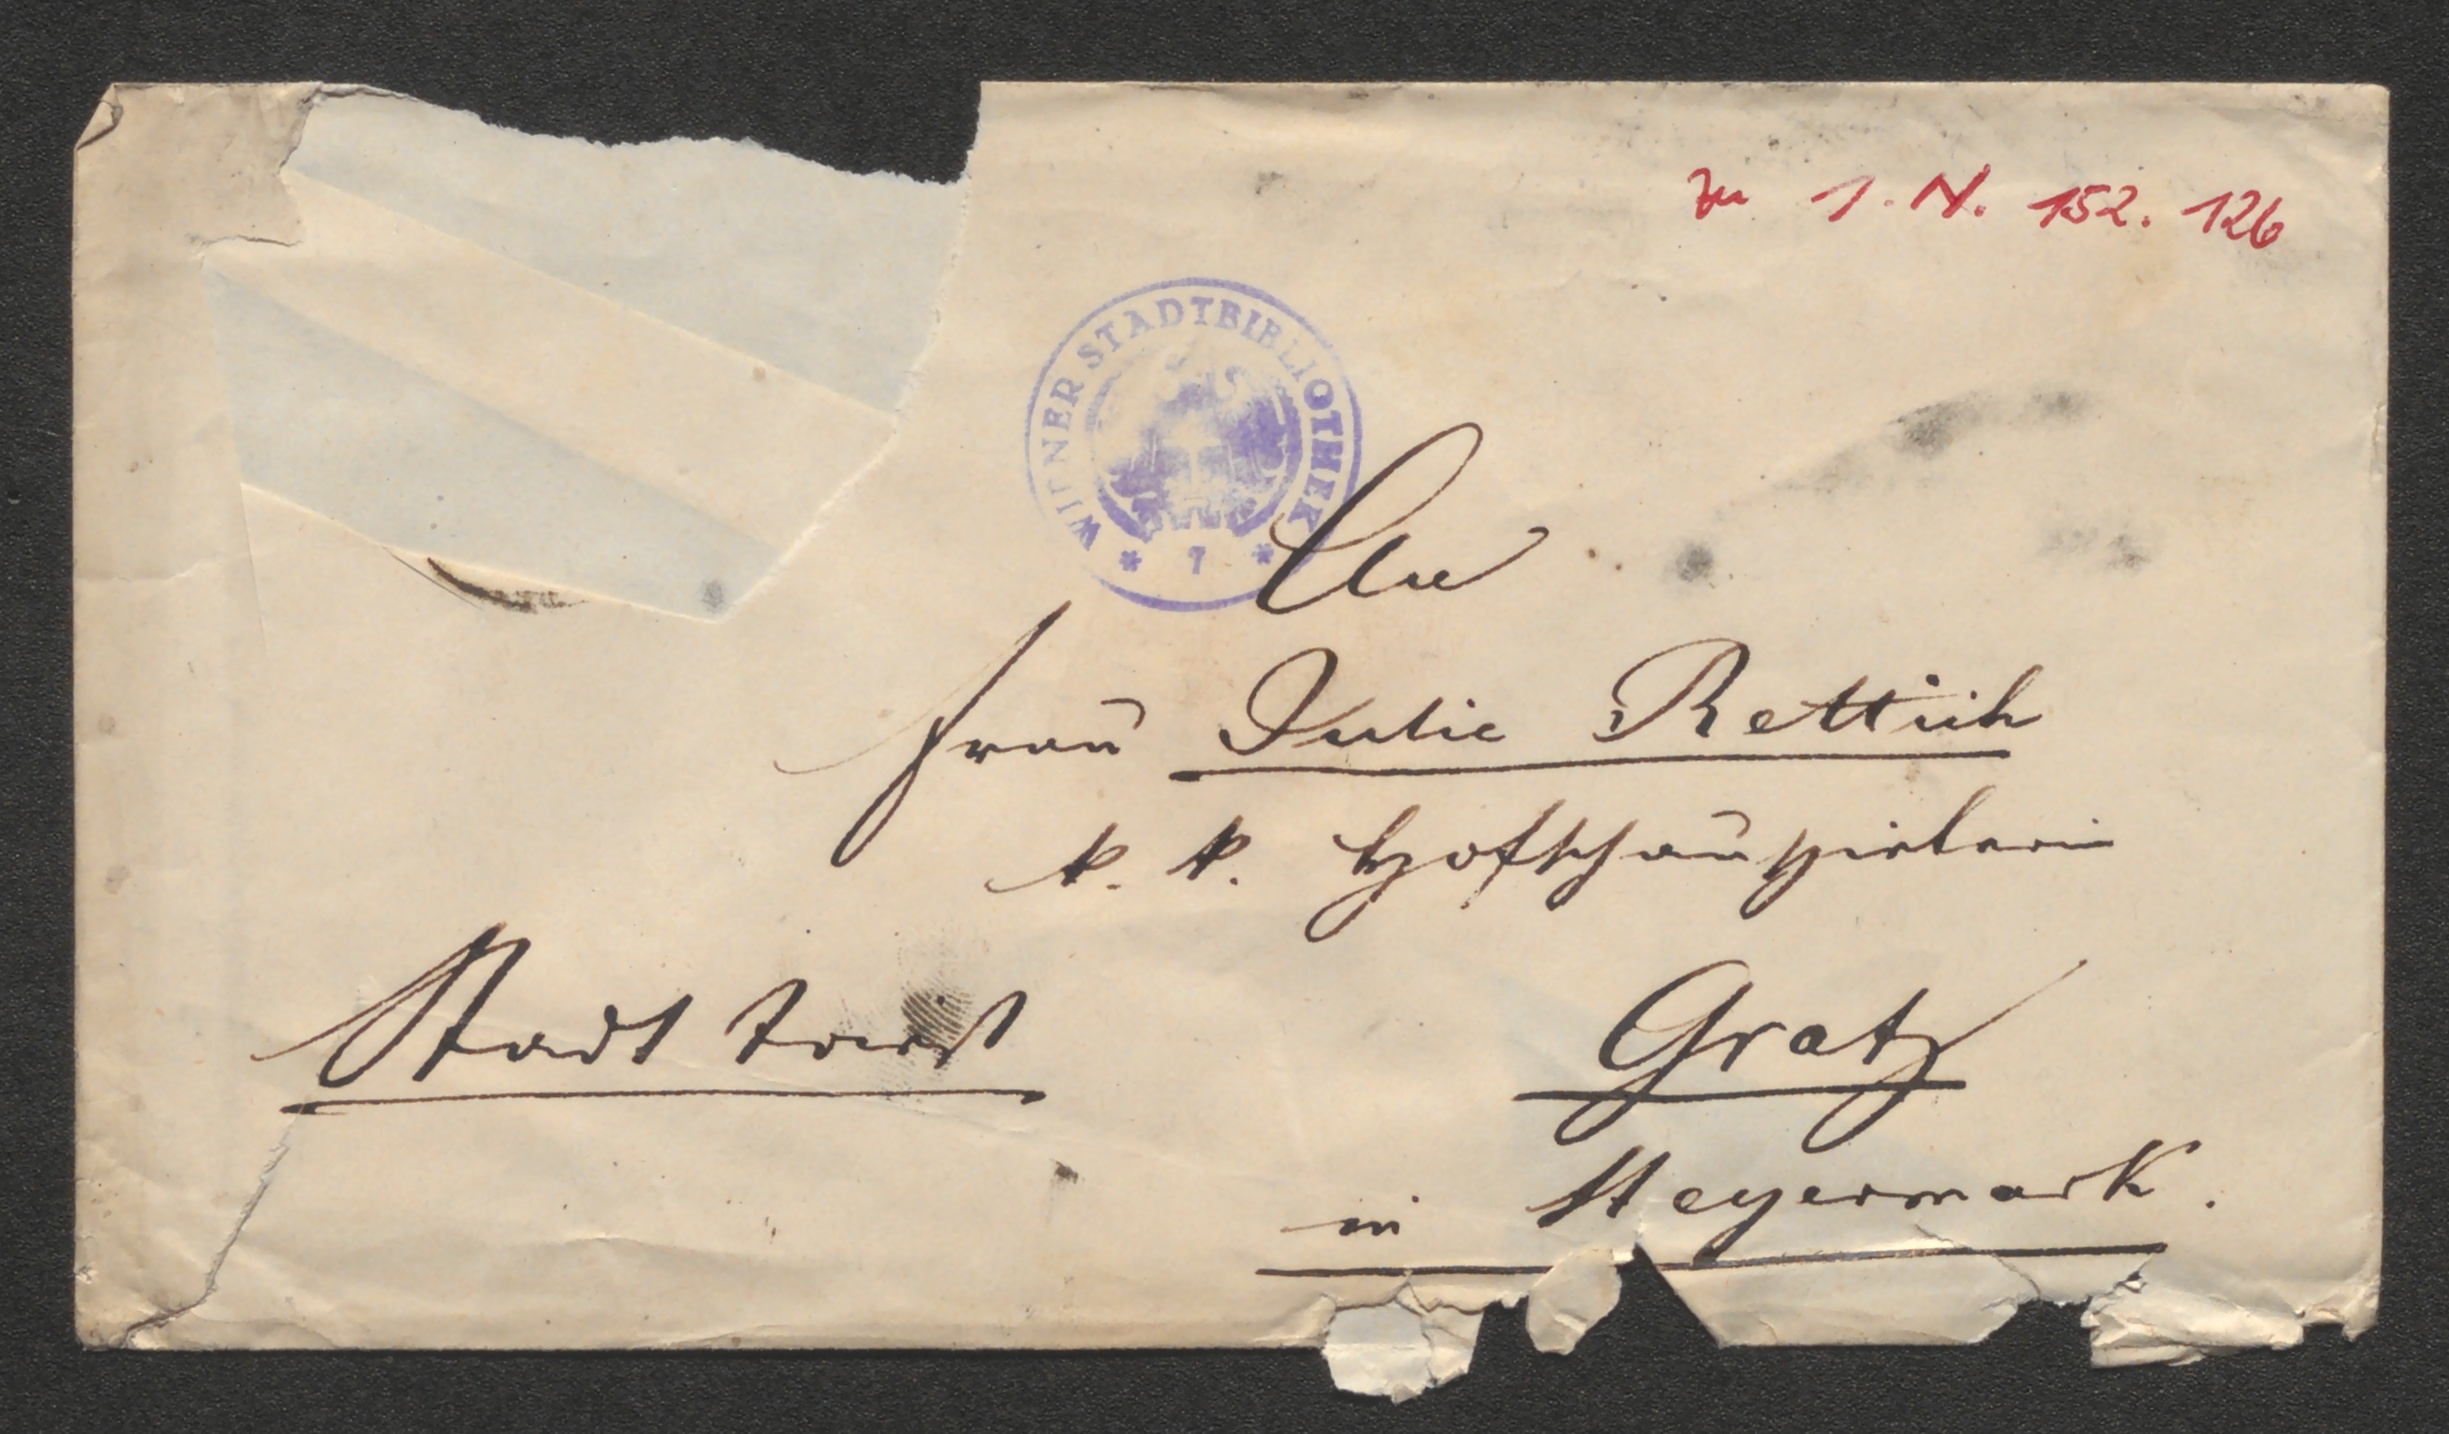 zu I. N. 152.126
WIENER STADTBIBLIOTHEK
* 7 *
An
Frau Julie Rettich
k. k. Hofschauspielerin
Stadt Triest
Gratz
in Steyermark.